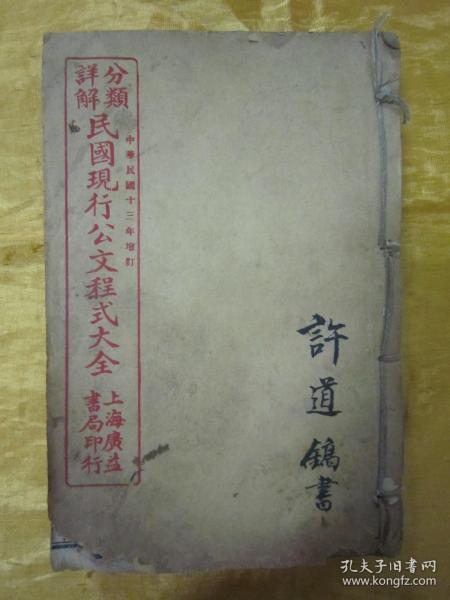 分類
詳解
民國現行公文程式大全
中華民國十三年增訂
上海廣益
書局印行
許道鎬書
孔夫子旧书网
www.kongfz.com